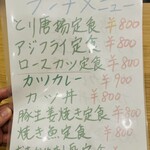 ランチメニュー
とり唐揚定食 ¥800
アジフライ定食 ¥800
ロースカツ定食 ¥800
カツカレー ¥900
カツ丼 ¥800
豚生姜焼き定食 ¥800
焼き魚定食 ¥800
¥800